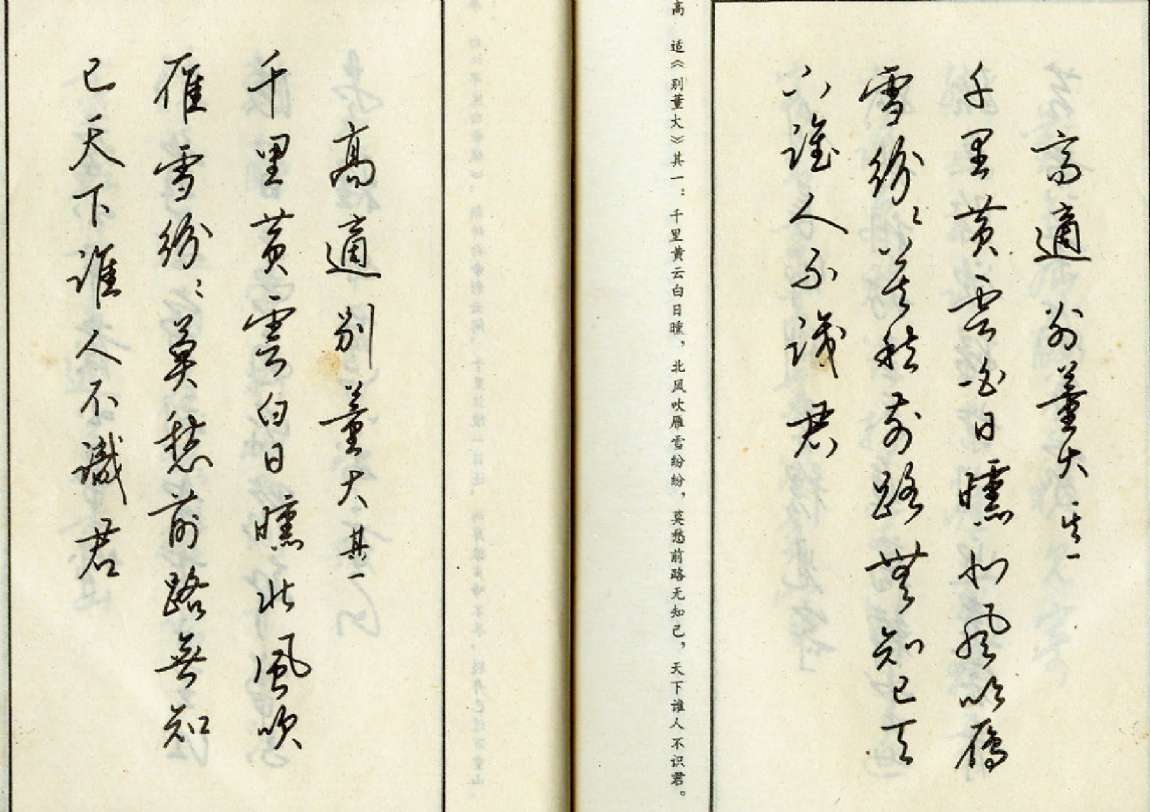 高適 别董大 其一
千里黄雲白日曛北風吹雁
雪紛〻莫愁前路無知己天
下誰人不識君
高 适《别董大》其一：千里黄云白日曛，北风吹雁雪纷纷，莫愁前路无知己，天下谁人不识君。
高適别董大 其一
千里黄雲白日曛北風吹
雁雪紛〻莫愁前路無知
已天下誰人不識君